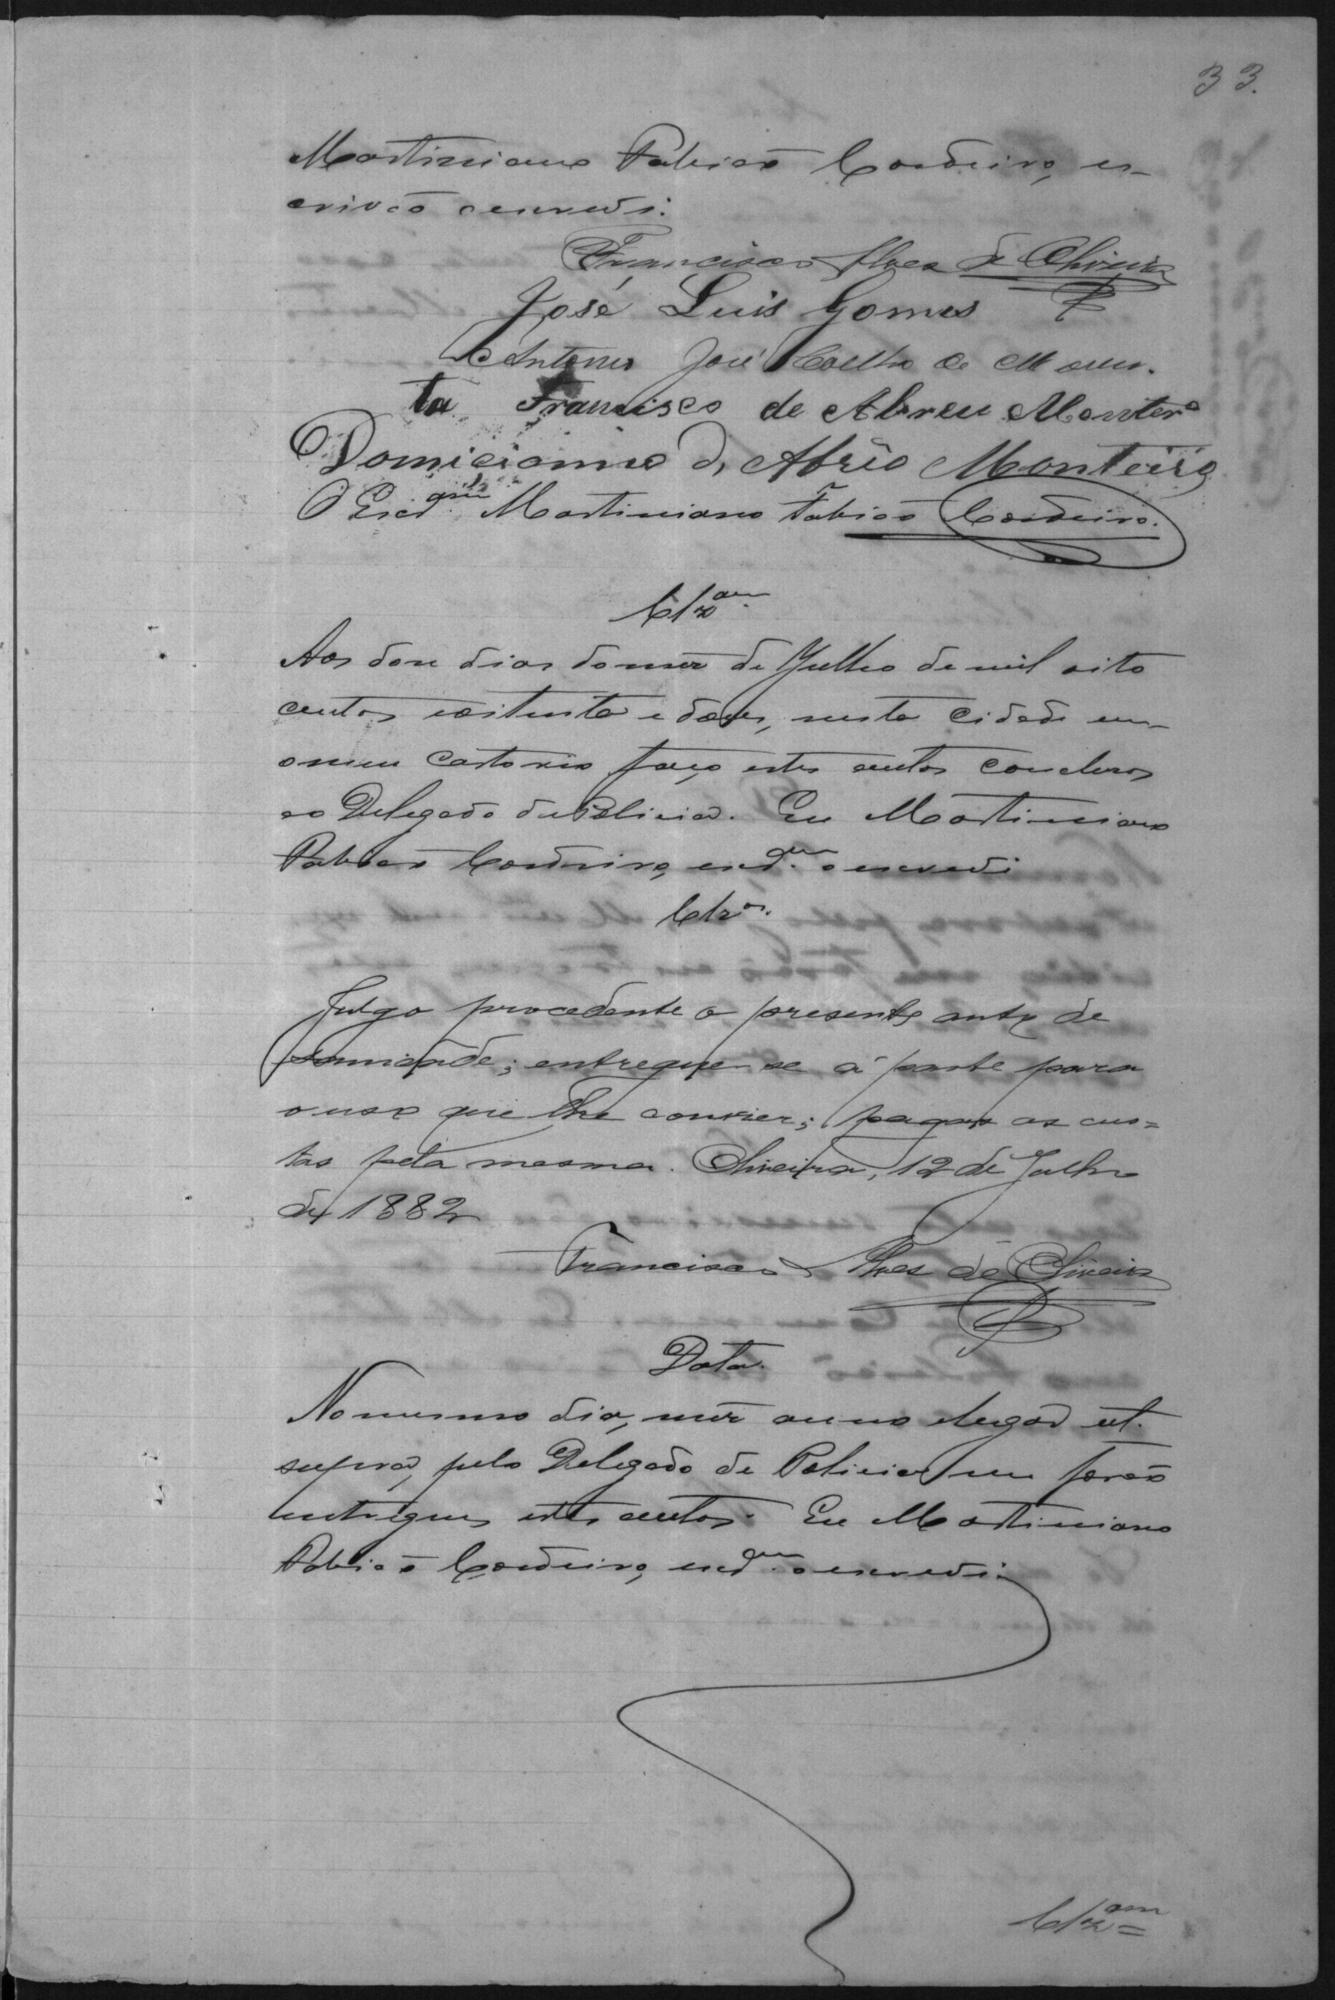 33.
Martiniano Fabião Cordeiro, es-
crivão o escrevi.
Francisco Alves de Oliveira
José Luis Gomes
Antonio José Coelho de Mour.
ta Francisco de Abreu Montero
Domicianno d Abrêo Monteiro
O Escram. Martiniano Fabião Cordeiro.
Clzam.
Aos doze dias do mez de Julho de mil oito
centos e oitenta e dous, nesta cidade em
o meu cartorio faço estes autos concluzos
ao Delegado de Policia. Eu Martiniano
Fabião Cordeiro, escram. o escrevi
Clzos.
Julgo procedente o presente auto de
; entregue-se á parte para
o uso que lhe convier; pagas as cus=
tas pela mesma. Oliveira, 12 de Julho
de 1882
Francisco Alves de Oliveira
Data.
No mesmo dia, mez anno e lugar ut.
supra, pelo Delegado de Policia me forão
entregues estes autos. Eu Martiniano
Fabião Cordeiro, escram. o escrevi.
Clzam=